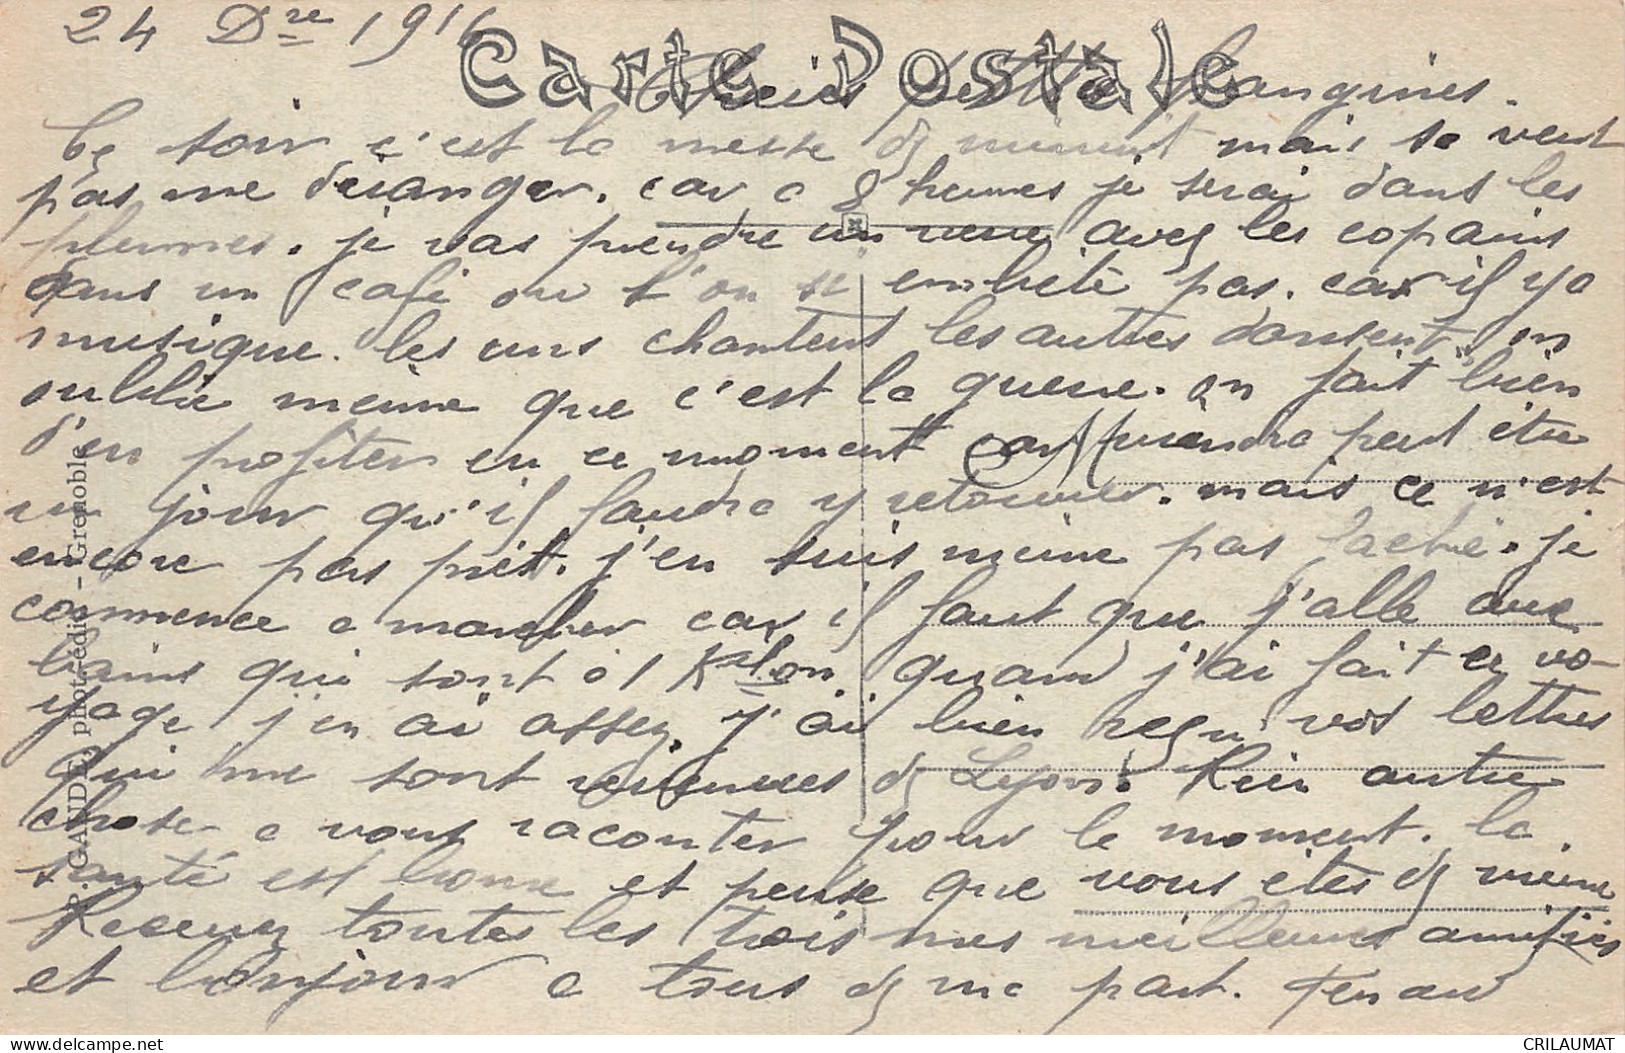 24 Dre 1916
Carte Postale
Cheres petites frangines.
Ce soir c'est la messe de minuit mais sa veut
pas me déranger. car a 8 heures je serai dans les
plumes. je vas prendre un verre avec les copains
dans un café ou l'on se embete pas. car il y a
musique. les uns chantent les autres dansent on
oublie meme que c'est la guerre. on fait bien
d'en profiter en ce moment car viendra peut être
un jour qu'il faudra y retourner. mais ce n'est
encore pas prêt. j'en suis meme pas faché. je
commence a marcher car il faut que j'alle aux
bains qui sont a 1 Kilon. quand j'ai fait ce vo-
yage j'en ai assez. j'ai bien reçu vos lettres
qui me sont revenues de Lyon. Rien autre
chose a vous raconter pour le moment. la
santé est bonne et pense que vous êtes de meme
Recevez toutes les trois mes meilleures amitiés
et bonjour a tous de ma part. Fenard
P. GAUDE, phot.-édit. - Grenoble
CRILAUMAT